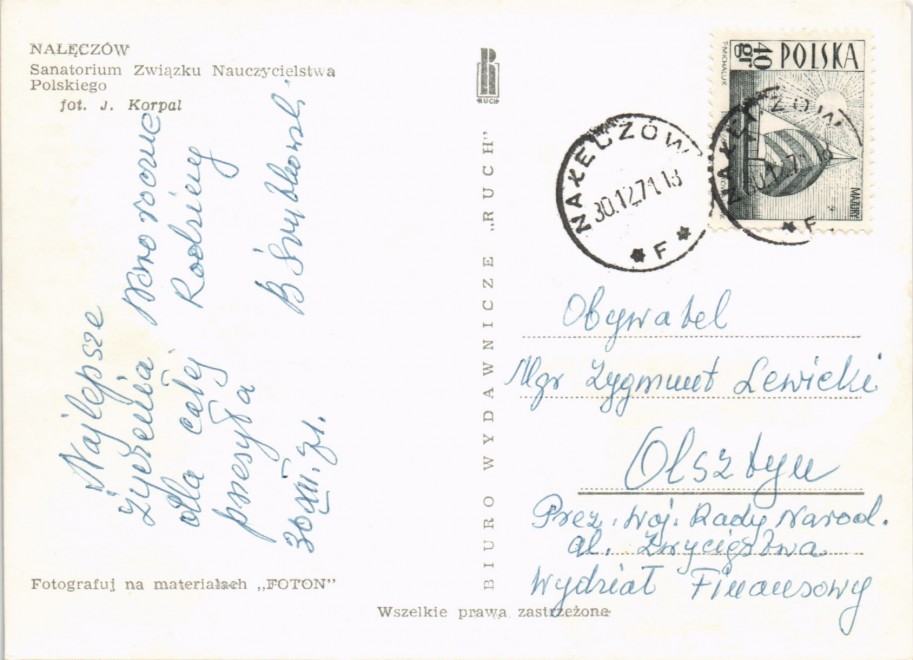 NAŁĘCZÓW
Sanatorium Związku Nauczycielstwa
Polskiego
fot. J. Korpal
Najlepsze
Życzenia Noworoczne
dla całej Rodziny
przesyła B
30 XII. 71.
Fotografuj na materiałach „FOTON”
RUCH
BIURO WYDAWNICZE „RUCH”
Wszelkie prawa zastrzeżone
40 gr POLSKA
MAZURY
F. MICHALUK
NAŁĘCZÓW
30.12.71.18
* F *
NAŁĘCZÓW
30.12.71.18
* F
Obywatel
Mgr Zygmunt Lewicki
Olsztyn
Prez. Woj. Rady Narod.
al. Zwycięstwa
Wydział Finansowy